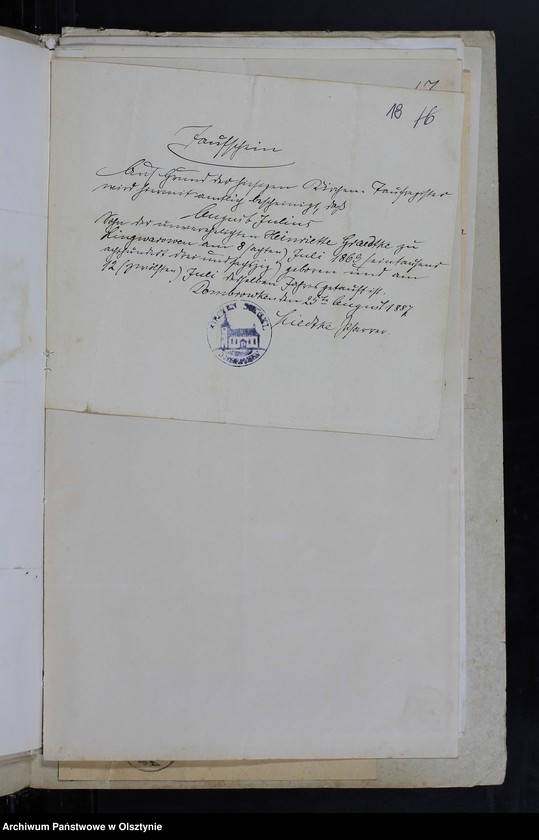 17
18 16
Taufschein
Auf Grund des hiesigen Kirchen-Taufregister
wird hiermit amtlich bescheinigt, daß
August Julius
Sohn der unverehelichten Henriette Graetzke zu
Lingwarowen am 8 (achten) Juli 1863 (eintausend
achthundert drei und sechzig) geboren und am
12 (zwölften) Juli desselben Jahres getauft ist.
Dombrowken den 25ten August 1887
Pfarrer.
Archiwum Państwowe w Olsztynie